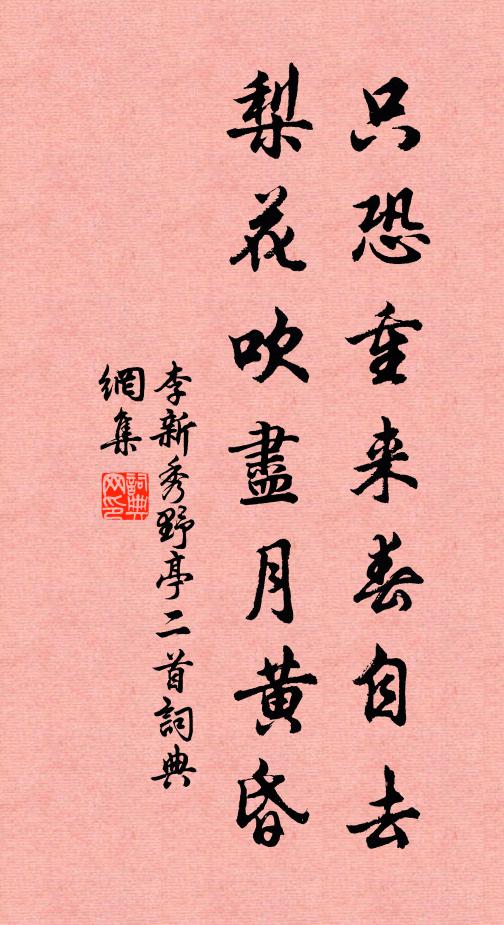 只恐重来春自去
梨花吹盡月黄昏
李新秀野亭二首詞典
網集
詞典
网印